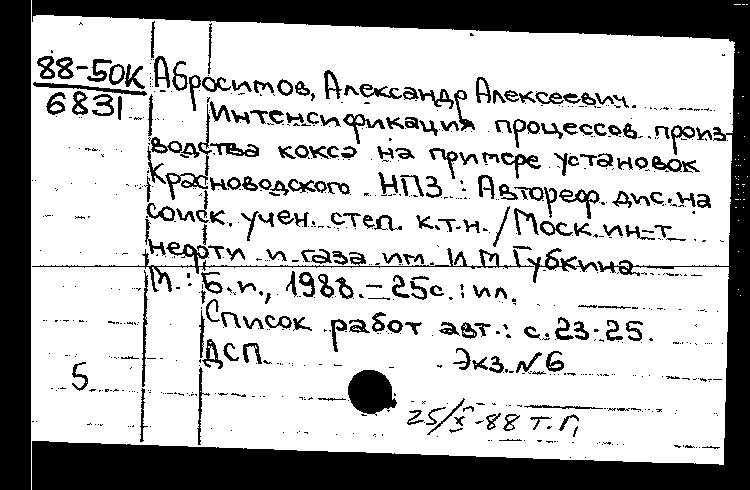 88-50К Абросимов, Александр Алексеевич.
6831 Интенсификация процессов произ-
водства кокса на примере установок
Красноводского НПЗ : Автореф. дис. на
соиск. учен. степ. к.т.н. / Моск. ин-т
нефти и газа им. И.М. Губкина. —
М. : Б.и., 1988. — 25с. : ил.
Список работ авт.: с. 23-25.
ДСП. Экз. №6
5
25/X-88 Т.Г,